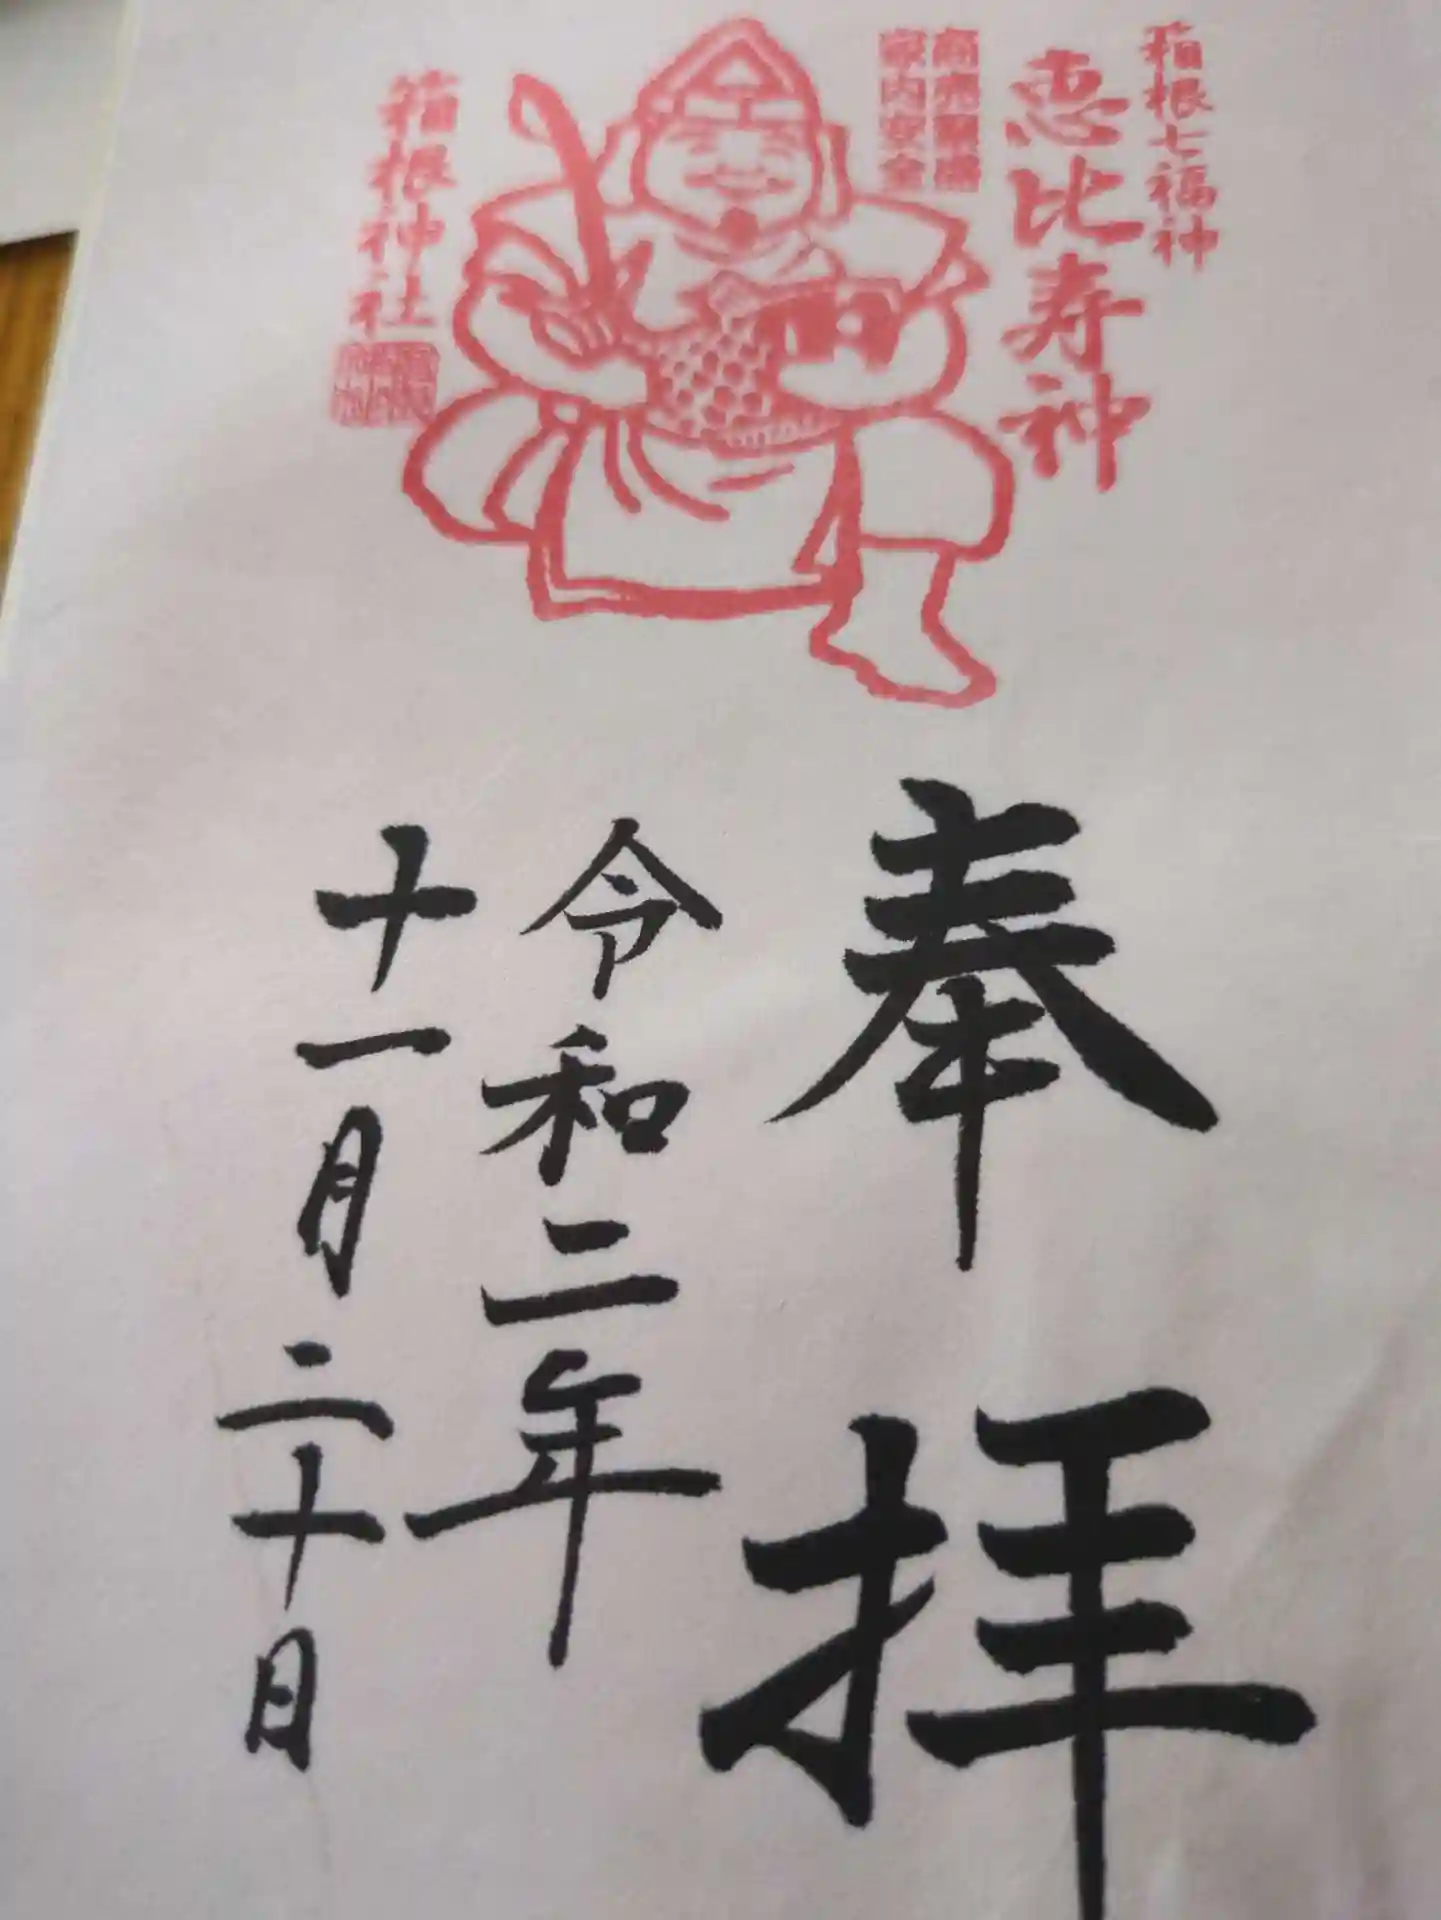 箱根七福神
恵比寿神
商売繁盛
家内安全
箱根神社
奉拝
令和二年
十一月二十日